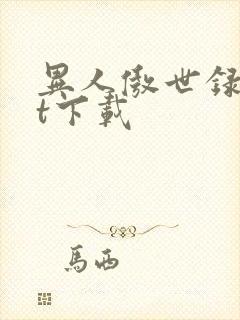 異人傲世録
t下載
馬西